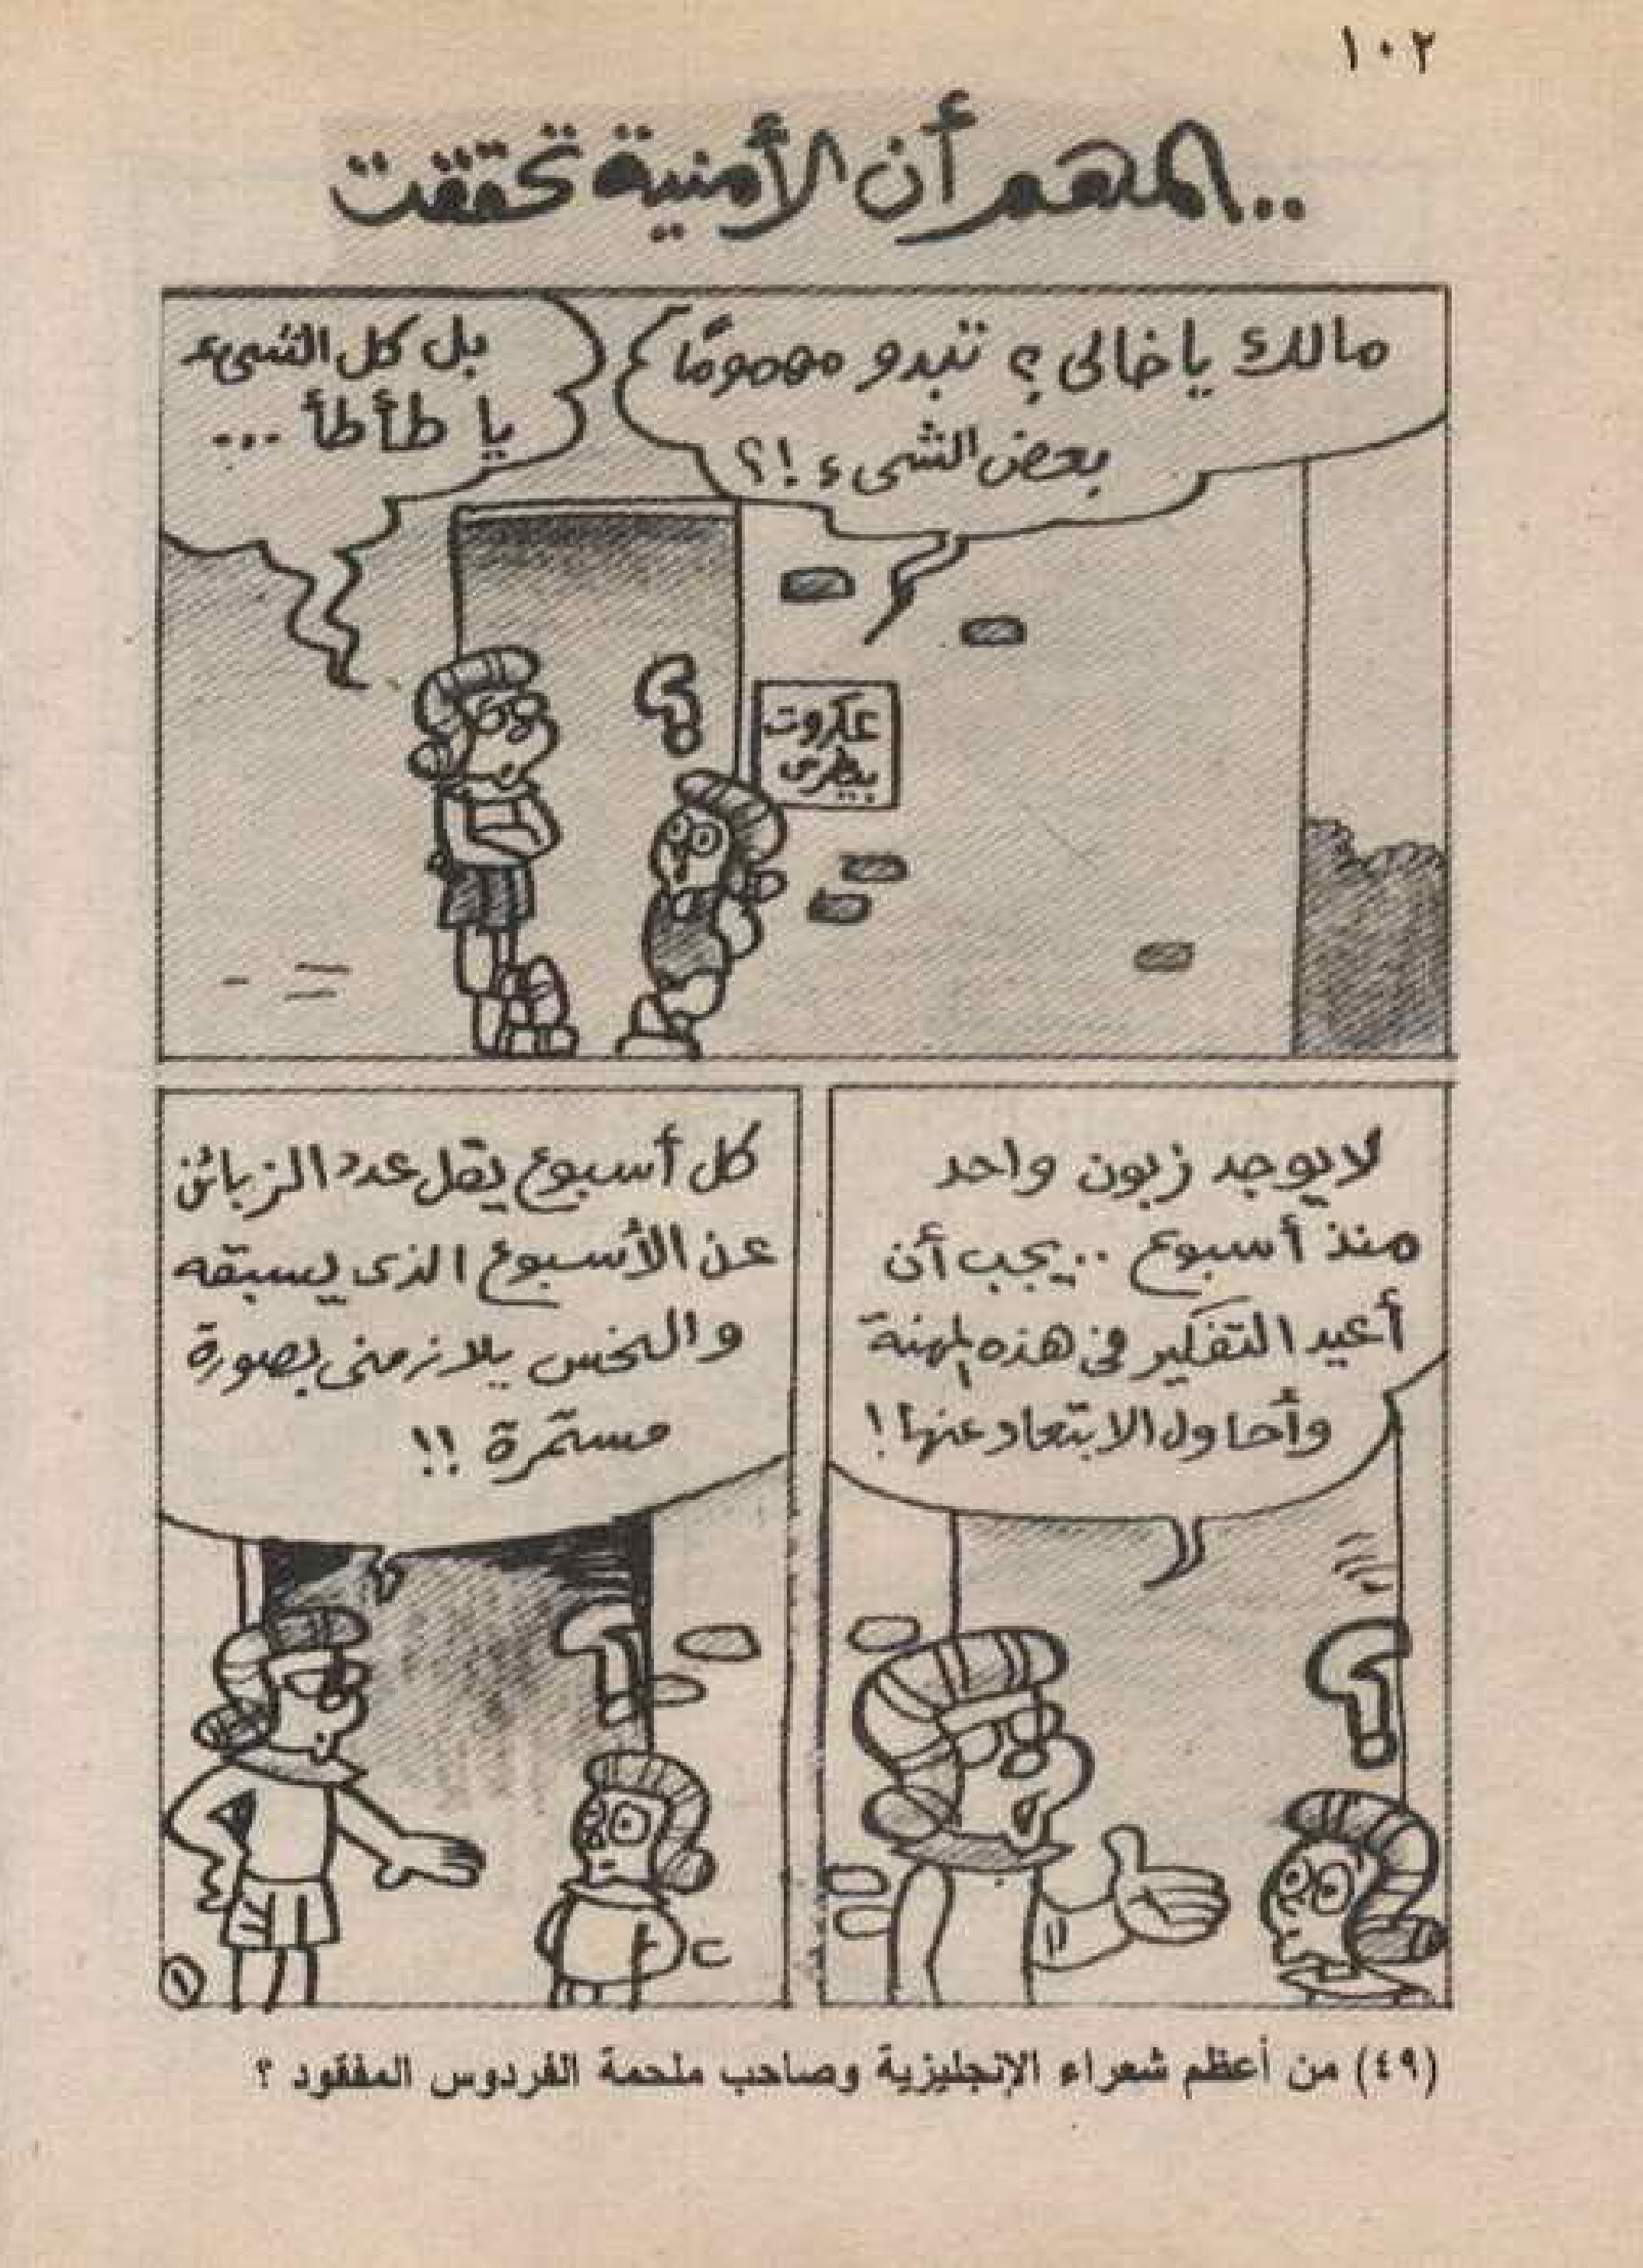 ١٠٢
..المهم أن الأمنية تحققت
مالك يا خالى ؟ تبدو مهمومًا
بعض الشىء !؟
بل كل الشىء
يا طأطأ ...
عكروت
بيطرى
لا يوجد زبون واحد
منذ أسبوع .. يجب أن
أعيد التفكير فى هذه المهنة
وأحاول الابتعاد عنها !
كل أسبوع يقل عدد الزبائن
عن الأسبوع الذى يسبقه
والنحس يلازمنى بصورة
مستمرة !!
١
(٤٩) من أعظم شعراء الإنجليزية وصاحب ملحمة الفردوس المفقود ؟